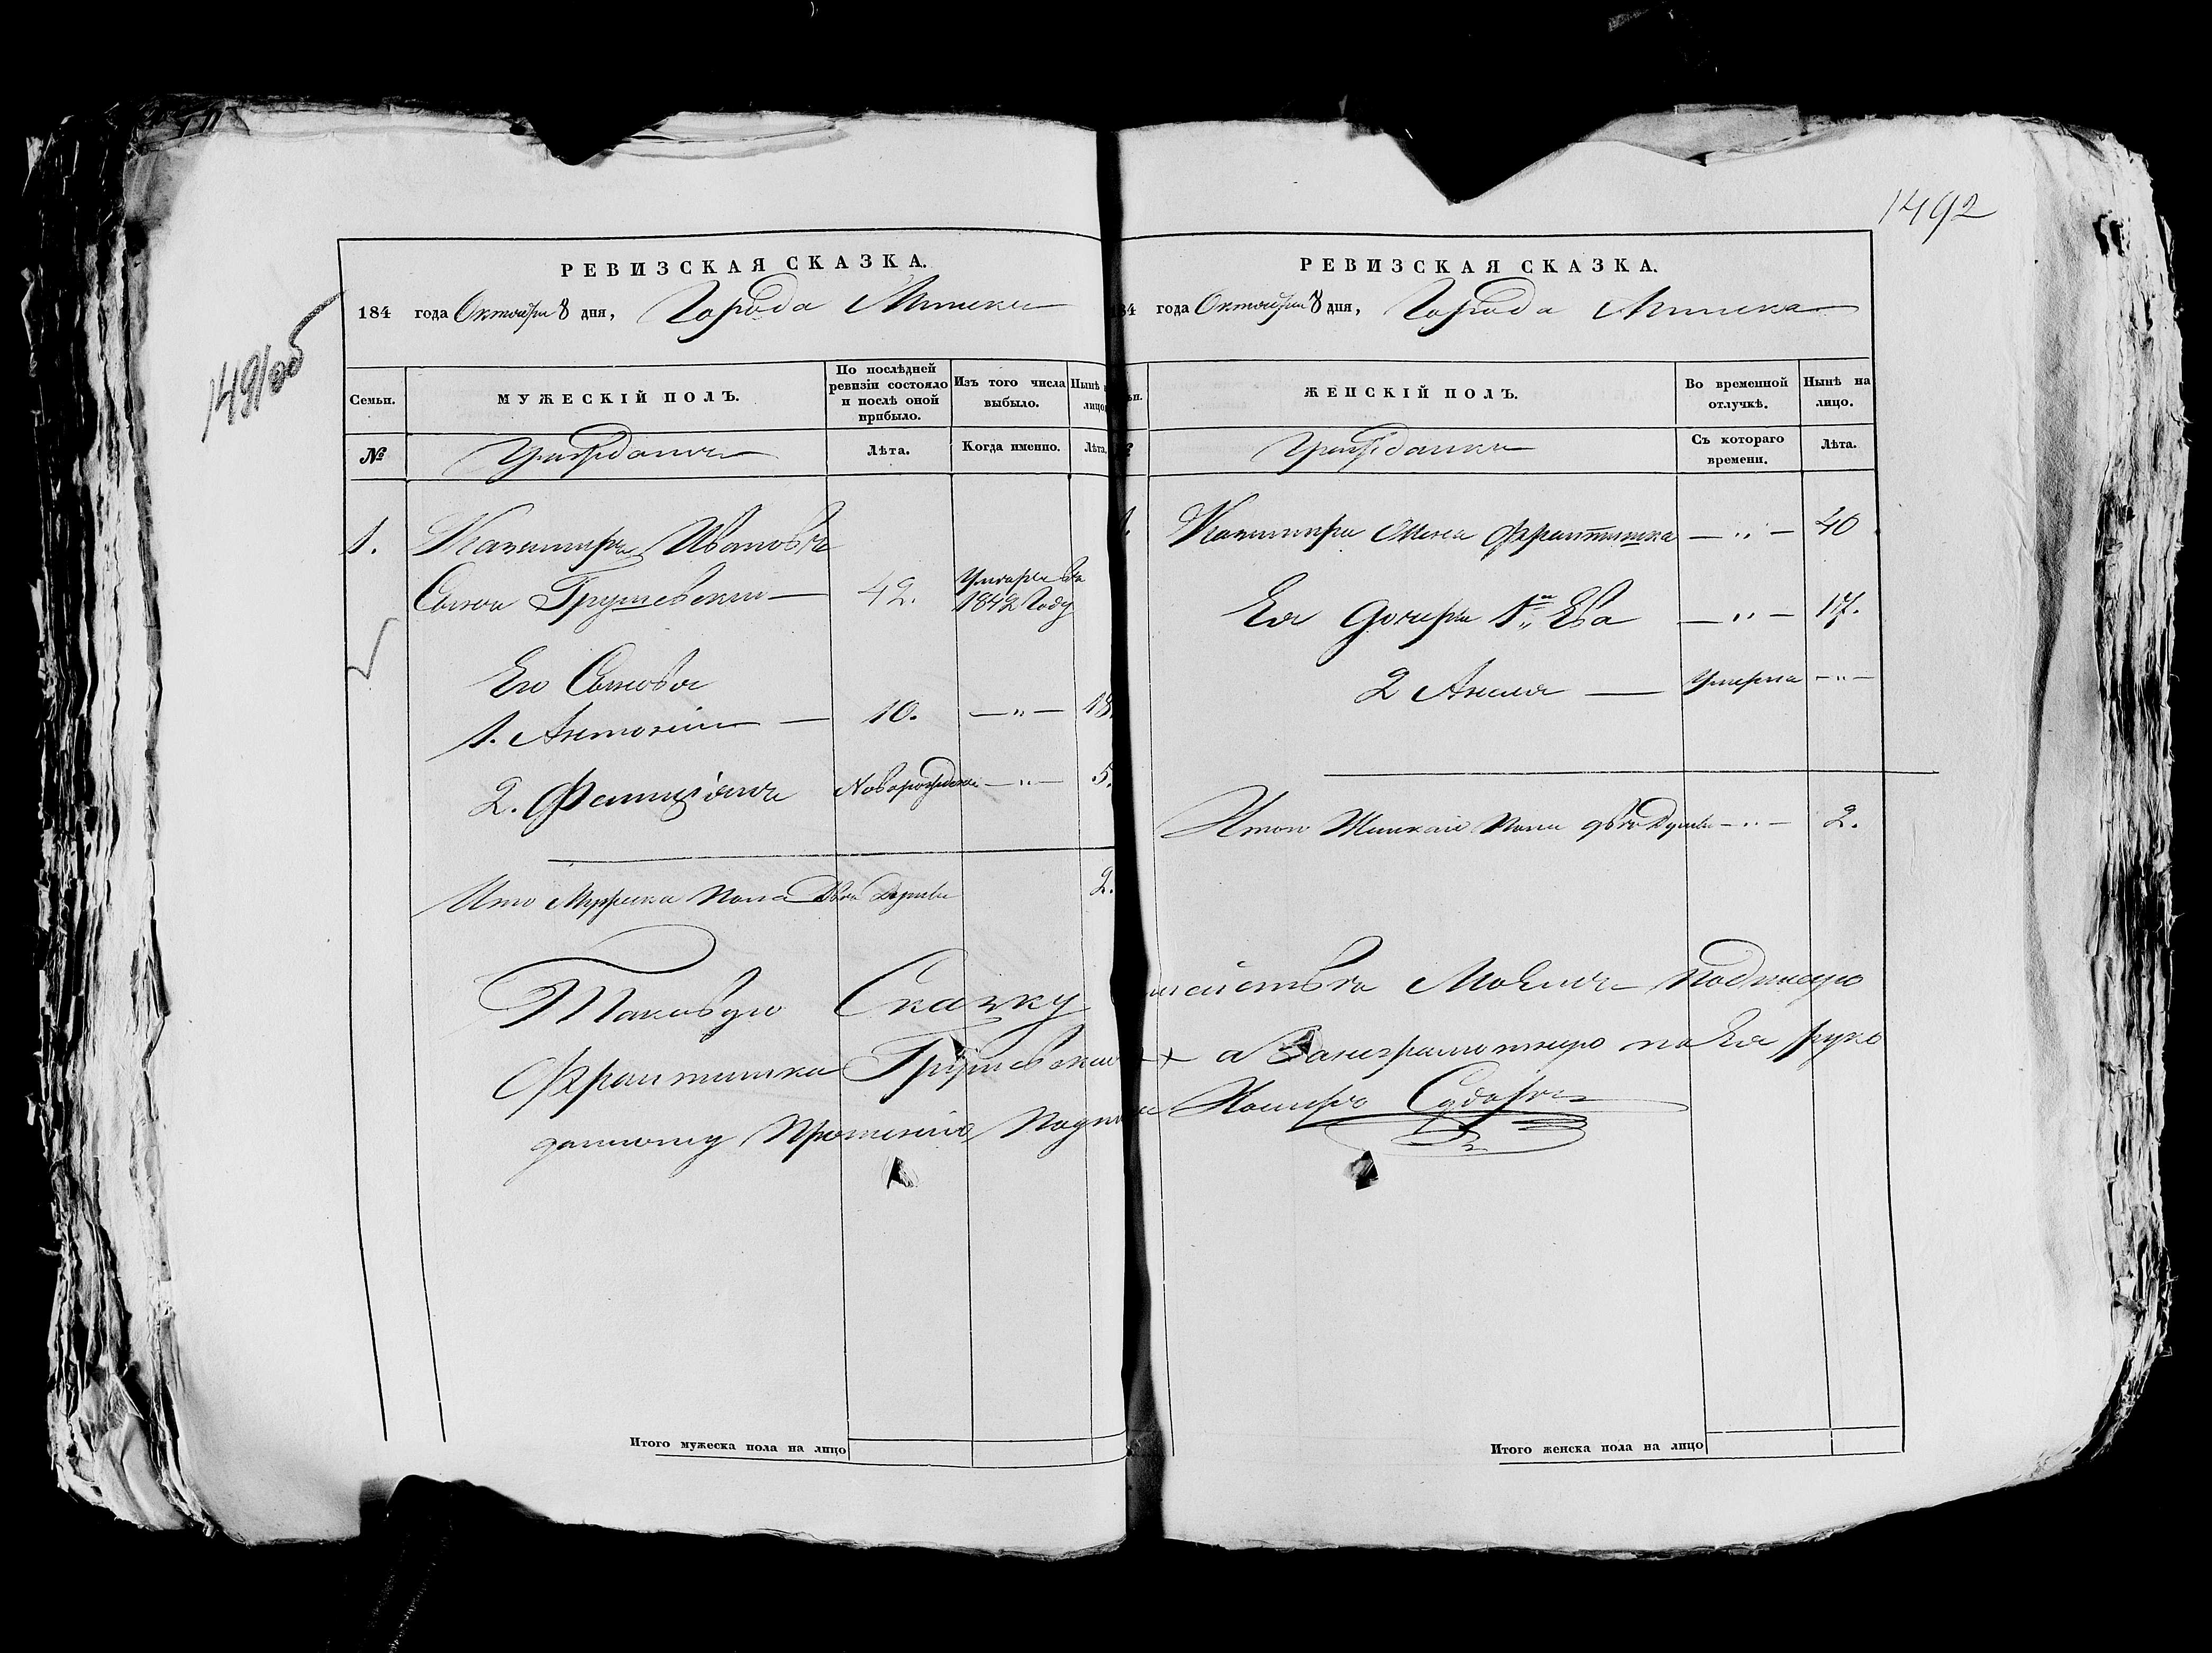 1491об
РЕВИЗСКАЯ СКАЗКА.
184 года Октября 8 дня, Города Минска
Семьи.
МУЖЕСКІЙ ПОЛЪ.
По послѣдней ревизіи состояло и послѣ оной прибыло.
Изъ того числа выбыло.
Нынѣ лицо
№
Гражданъ
Лѣта.
Когда именно.
Лѣта.
1. Казимиръ Ивановъ
Сынъ Грушевскій — 42. Умеръ въ 1842 Году
Его Сыновья
1. Антоній — 10. — „ — 18
2. Фелиціянъ Новорожден — „ — 5.
Итого Мужеска Пола Двѣ Души 2.
1492
РЕВИЗСКАЯ СКАЗКА.
184 года Октября 8 дня, Города Минска
ЖЕНСКІЙ ПОЛЪ.
Во временной отлучкѣ.
Нынѣ на лицо.
Гражданка
Съ котораго времени.
Лѣта.
1. Казимира Жена Франтишка — „ — 40
Ея Дочери 1я Ева — „ — 17.
2 Анеля — Умерла — „ —
Итого Женскаго Пола двѣ Души — „ — 2.
Таковую Сказку семействъ Моемъ Подписую
Франтишка Грушевская + а Занеграмотную по Ея руко
данному Прошенію Подписал
Итого мужеска пола на лицо
Итого женска пола на лицо